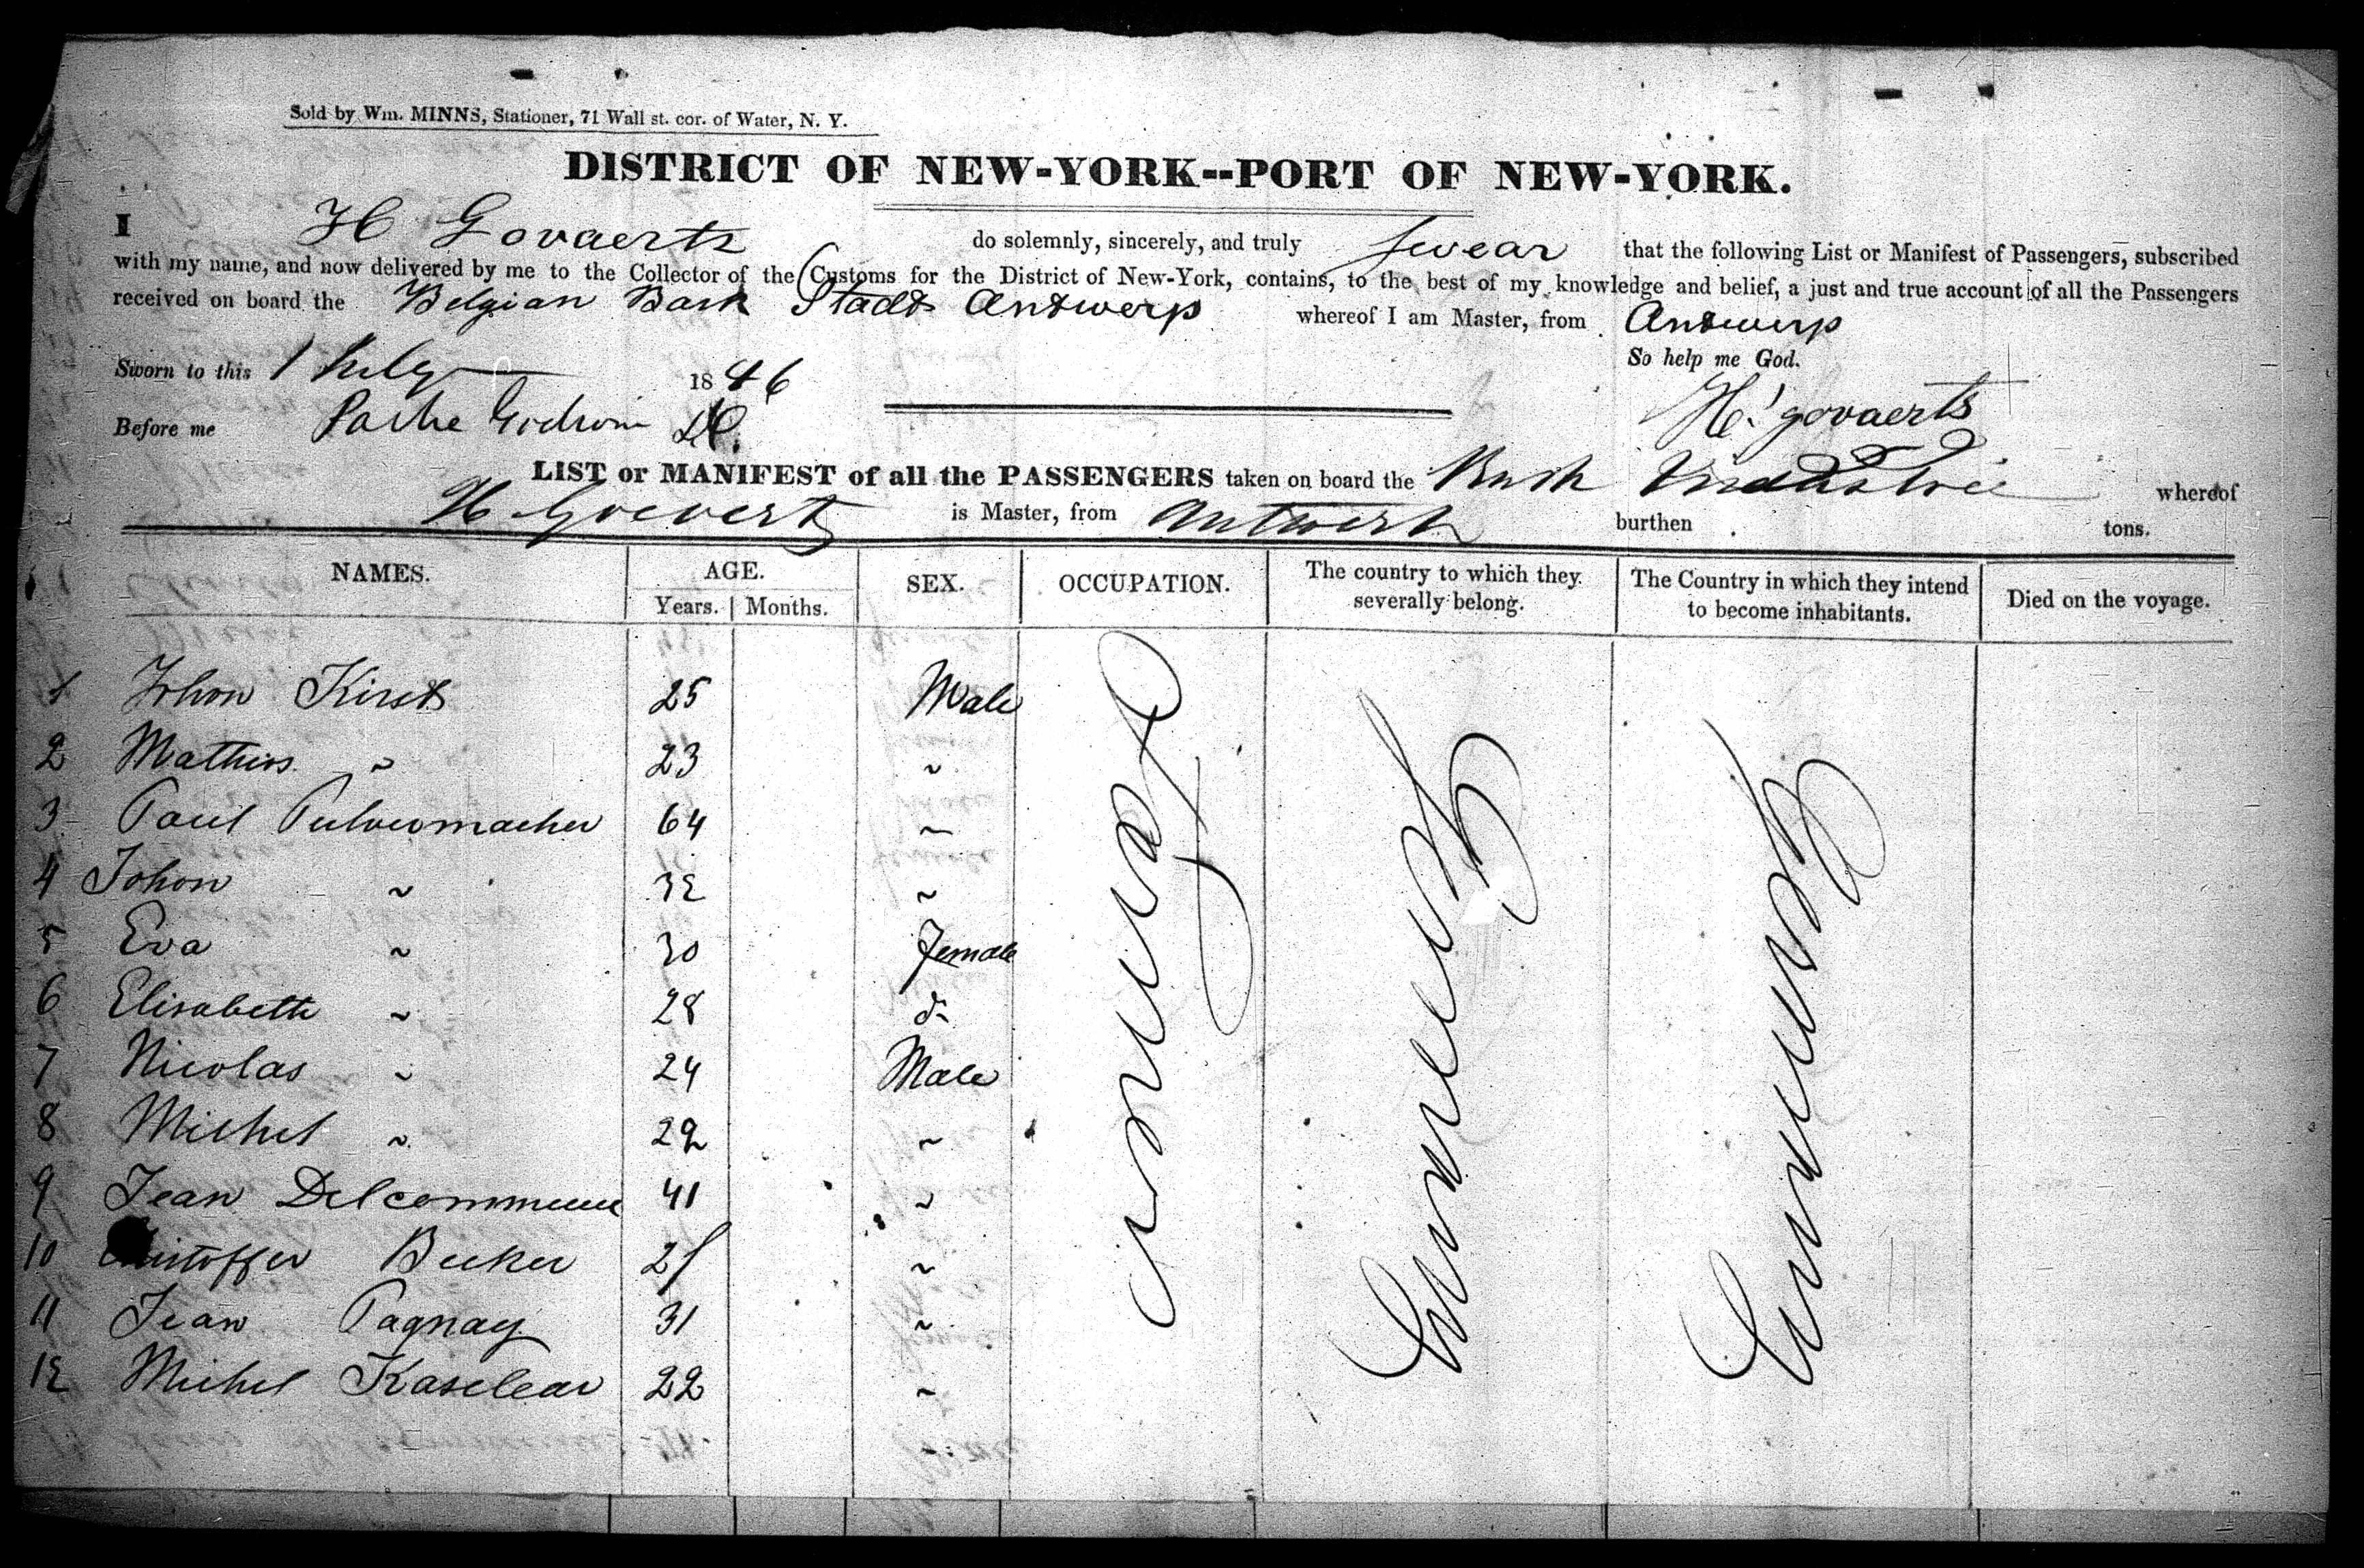 Sold by Wm. MINNS, Stationer, 71 Wall st. cor. of Water, N. Y.
DISTRICT OF NEW-YORK--PORT OF NEW-YORK.
I H Govaerts do solemnly, sincerely, and truly swear that the following List or Manifest of Passengers, subscribed
with my name, and now delivered by me to the Collector of the Customs for the District of New-York, contains, to the best of my knowledge and belief, a just and true account of all the Passengers
received on board the Belgian Bark Stadt Antwerp whereof I am Master, from Antwerp
So help me God.
Sworn to this 1 July 1846
H. govaerts
Before me Parke Godwin
LIST or MANIFEST of all the PASSENGERS taken on board the whereof
H Goeverts is Master, from Antwerp burthen tons.
NAMES. AGE. SEX. OCCUPATION. The country to which they severally belong. The Country in which they intend to become inhabitants. Died on the voyage.
Years. Months.
1 Johon Kirst 25 Male
2 Mathios " 23 "
3 Paul Pulvermacher 64 "
4 Johon " 32 "
5 Eva " 30 Female
6 Elisabeth " 28 do
7 Nicolas " 24 Male
8 Michel " 22 "
9 Jean Delcommune 41 "
10 Becker "
11 Jean Pagnay 31 "
12 Michel Kaselear 22 "
Farmer
Germany
Germany